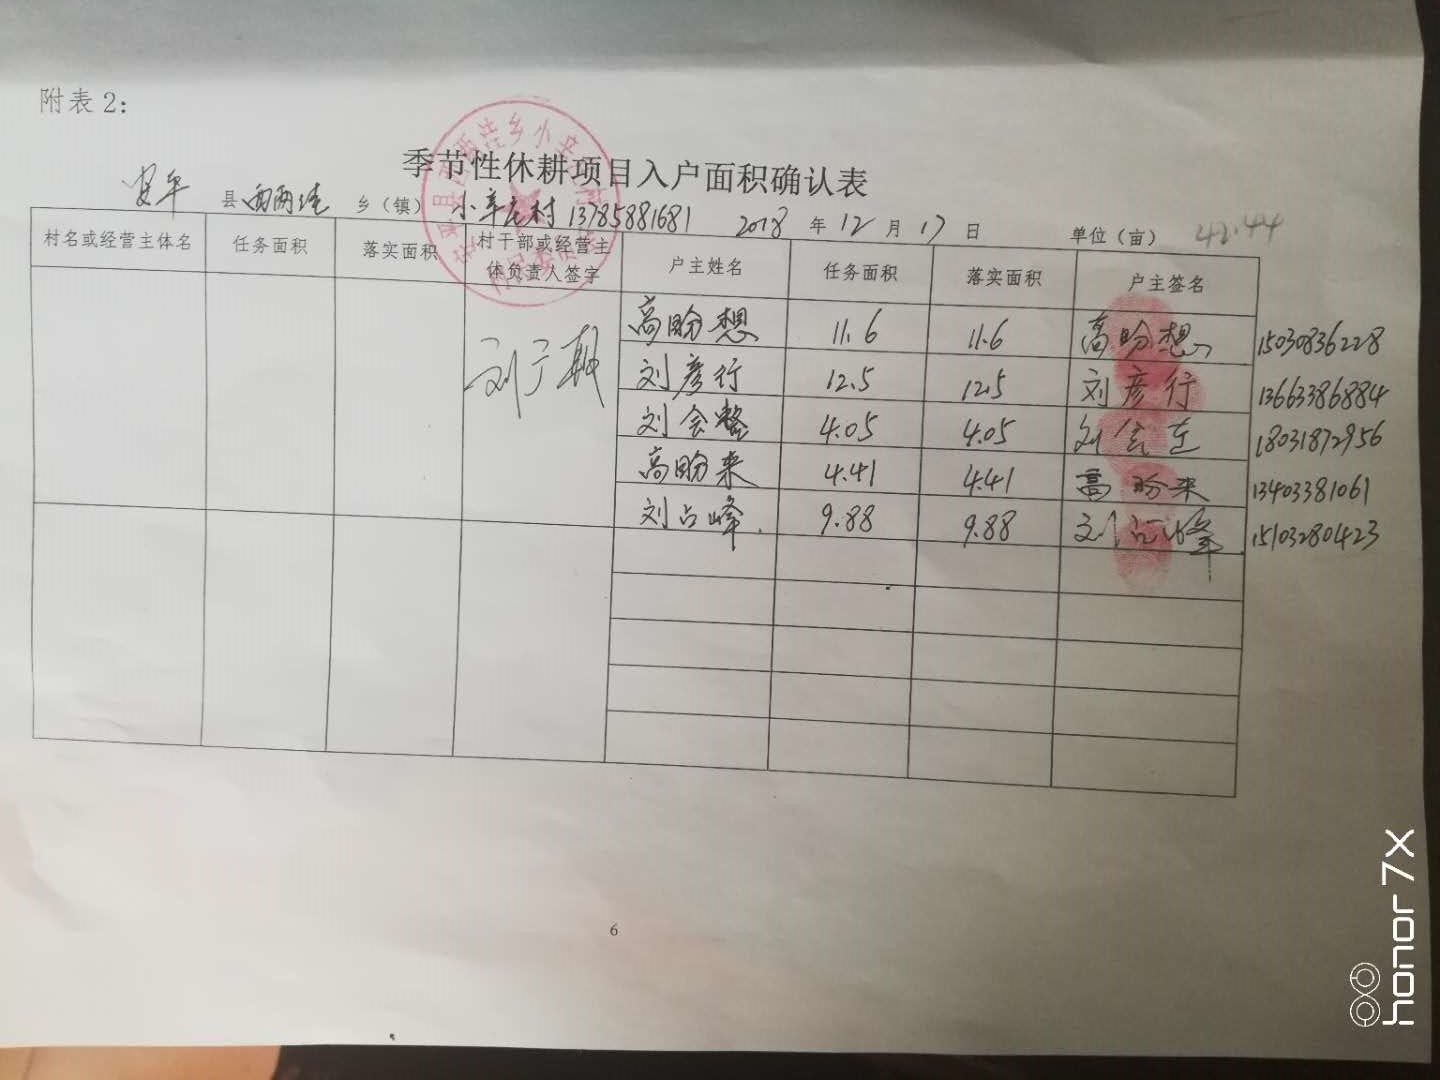 附表2：
季节性休耕项目入户面积确认表
安平 县 西两洼 乡（镇） 小辛庄村 13785881681 2018 年 12 月 17 日 单位（亩） 42.44
村名或经营主体名 任务面积 落实面积 村干部或经营主体负责人签字 户主姓名 任务面积 落实面积 户主签名
高盼想 11.6 11.6 高盼想 15030836228
刘彦行 12.5 12.5 刘彦行 13663386884
刘会整 4.05 4.05 刘会 18031872956
高盼来 4.41 4.41 高盼来 13403381061
刘占峰 9.88 9.88 刘占峰 15103280423
6
honor 7X